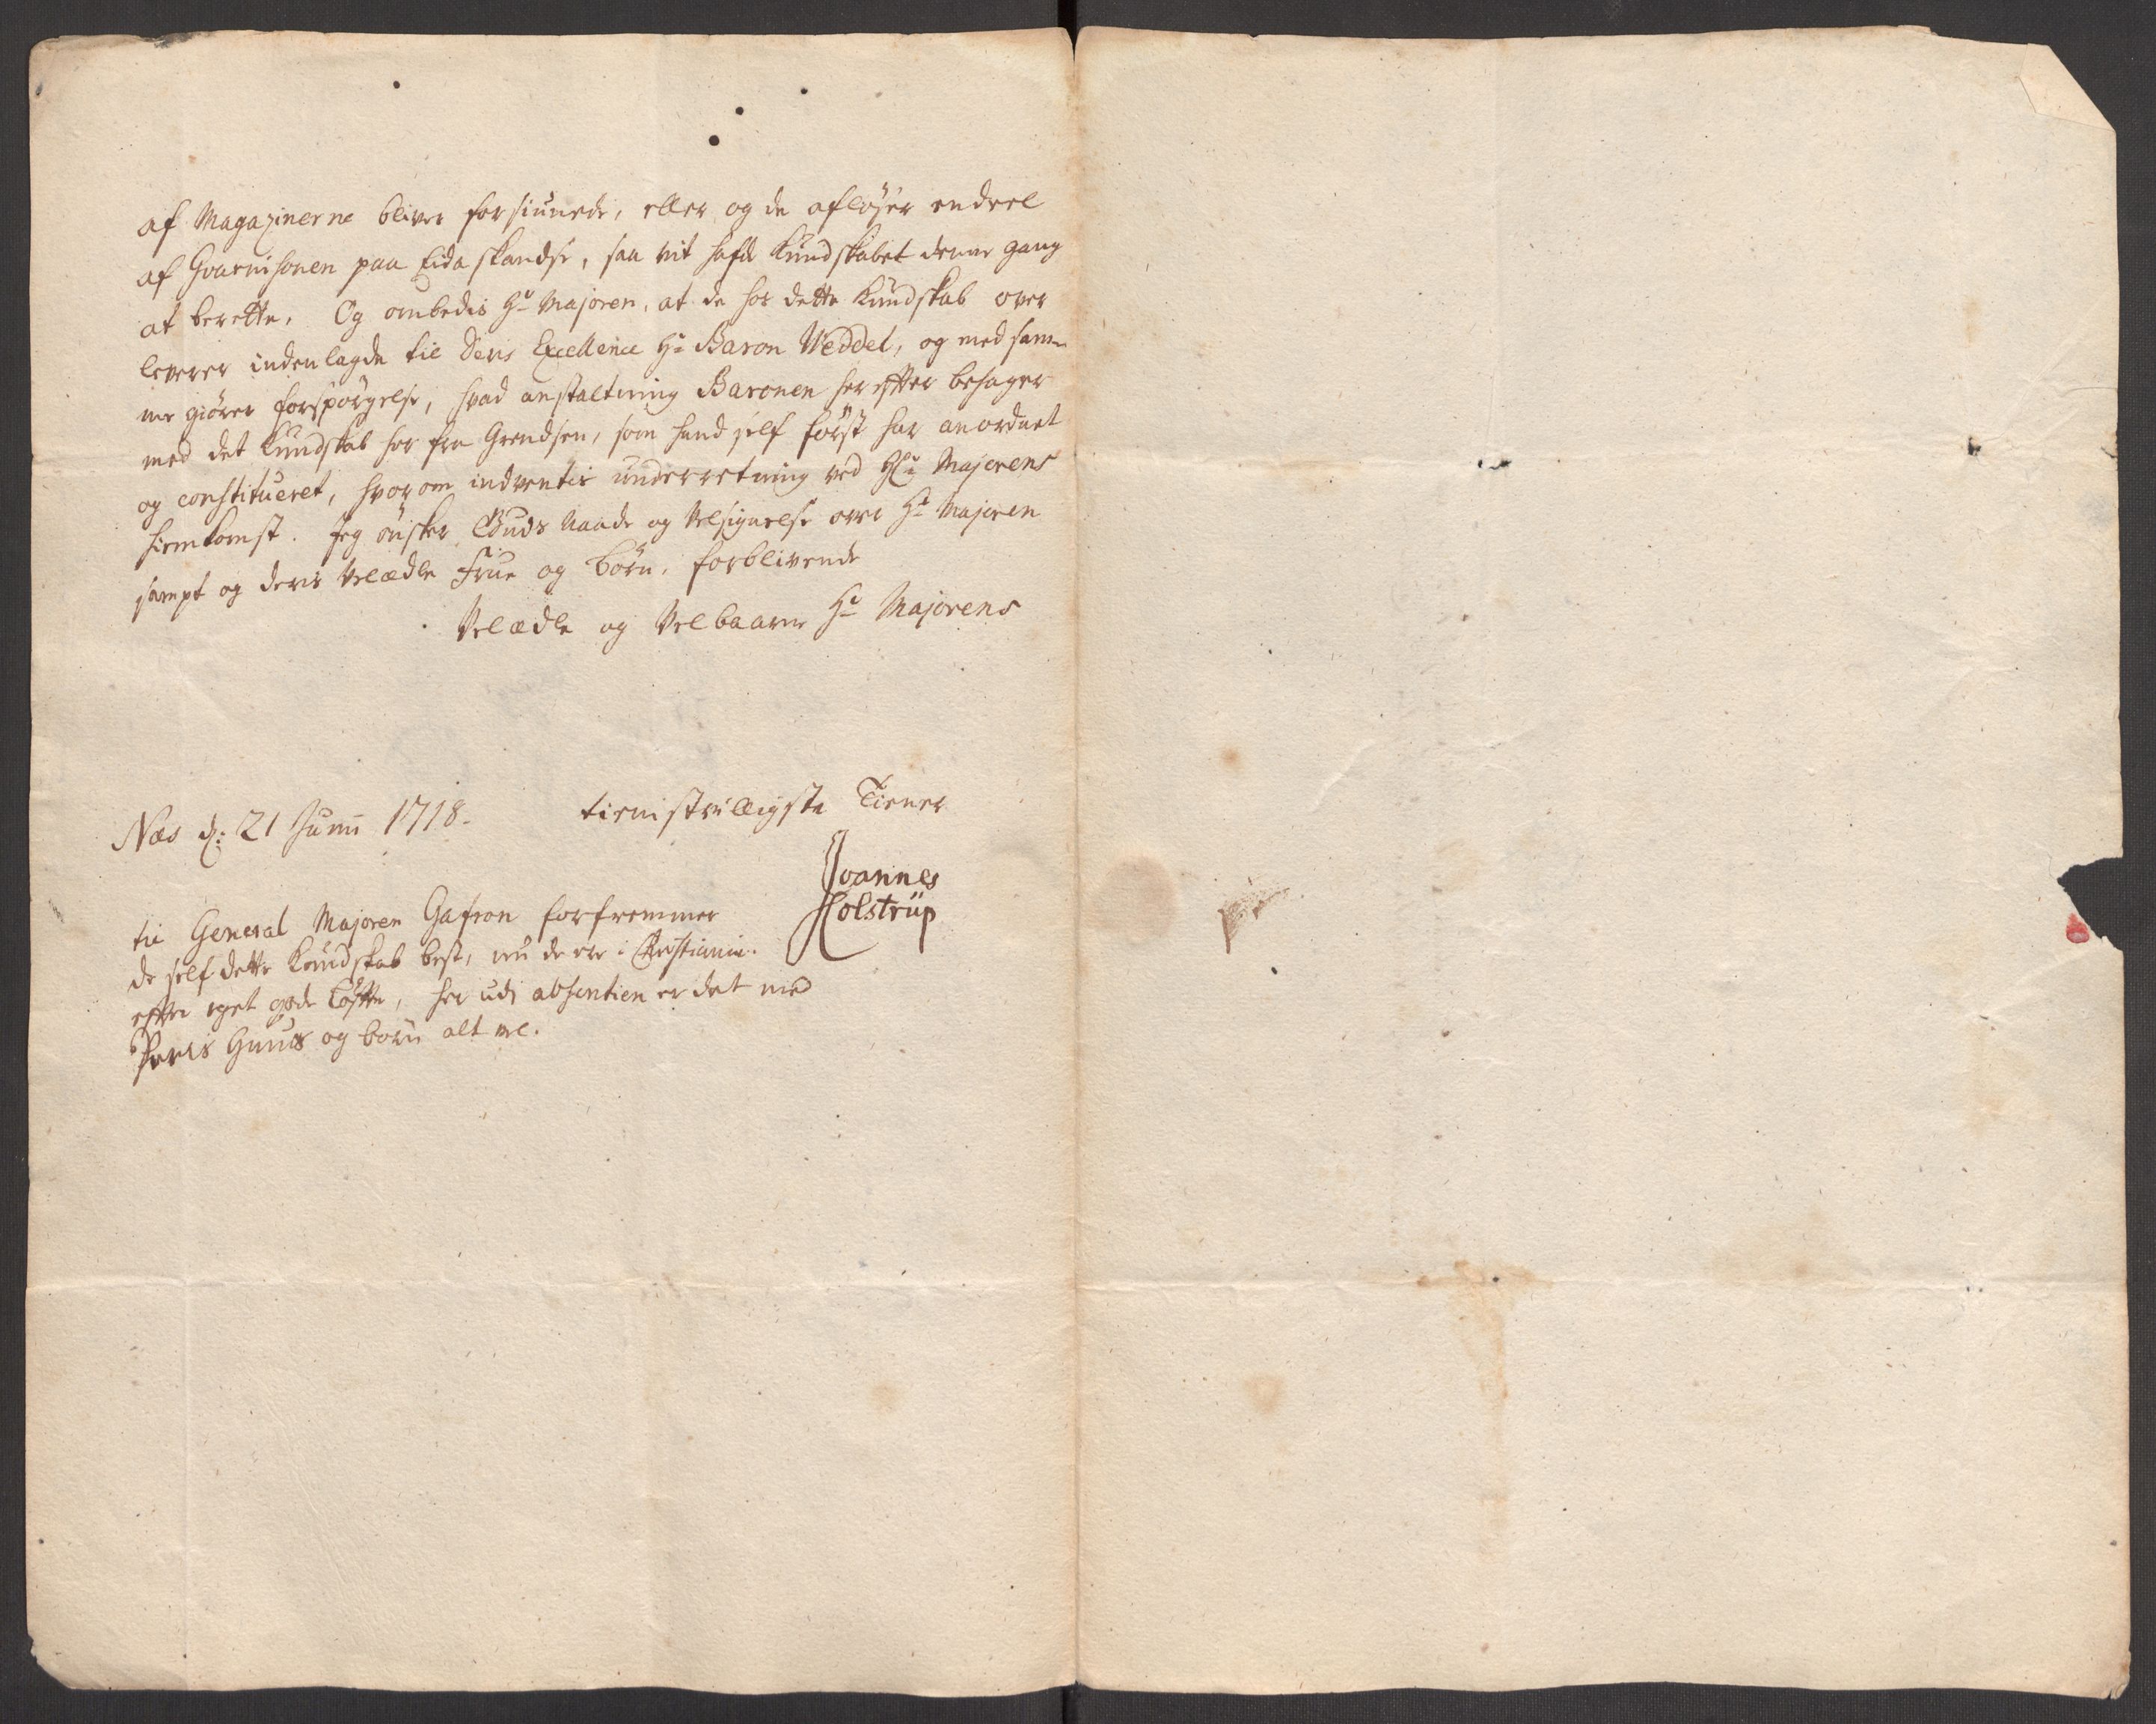 af Magazinerne bliver forsiunede, eller og de afløser endeel
af Gvarnisonen paa Eida skandse, saa vit hafde Kundskabet denne gang
at berette. Og ombedis Hr Majoren, at de for dette Kundskab over
leverer indenlagde til Deris Excellence Hr Baron Weddel, og med sam-
me giører forspørgelse, hvad anstaltning Baronen her efter behager
med det Kundskab her fra Grendsen, som hand self først har anordnet
og constitueret, hvorom indventis underretning ved Hr Majorens
hiemkomst. Jeg ønsker Guds Naade og Velsignelse over Hr Majoren
sampt og deris Velædle Frue og børn, forblivende
Velædle og Velbaarne Hr Majorens
Næs d: 21 Junii 1718.
tienistvilligste Tiener
Joannes
Holstrüp
til General Majoren Gafron forfremmer
de self dette Kundskab best, nu de ere i Christiania.
efter eget gode løfte, her udj absentien er det med
Deris Huus og børn alt vel.